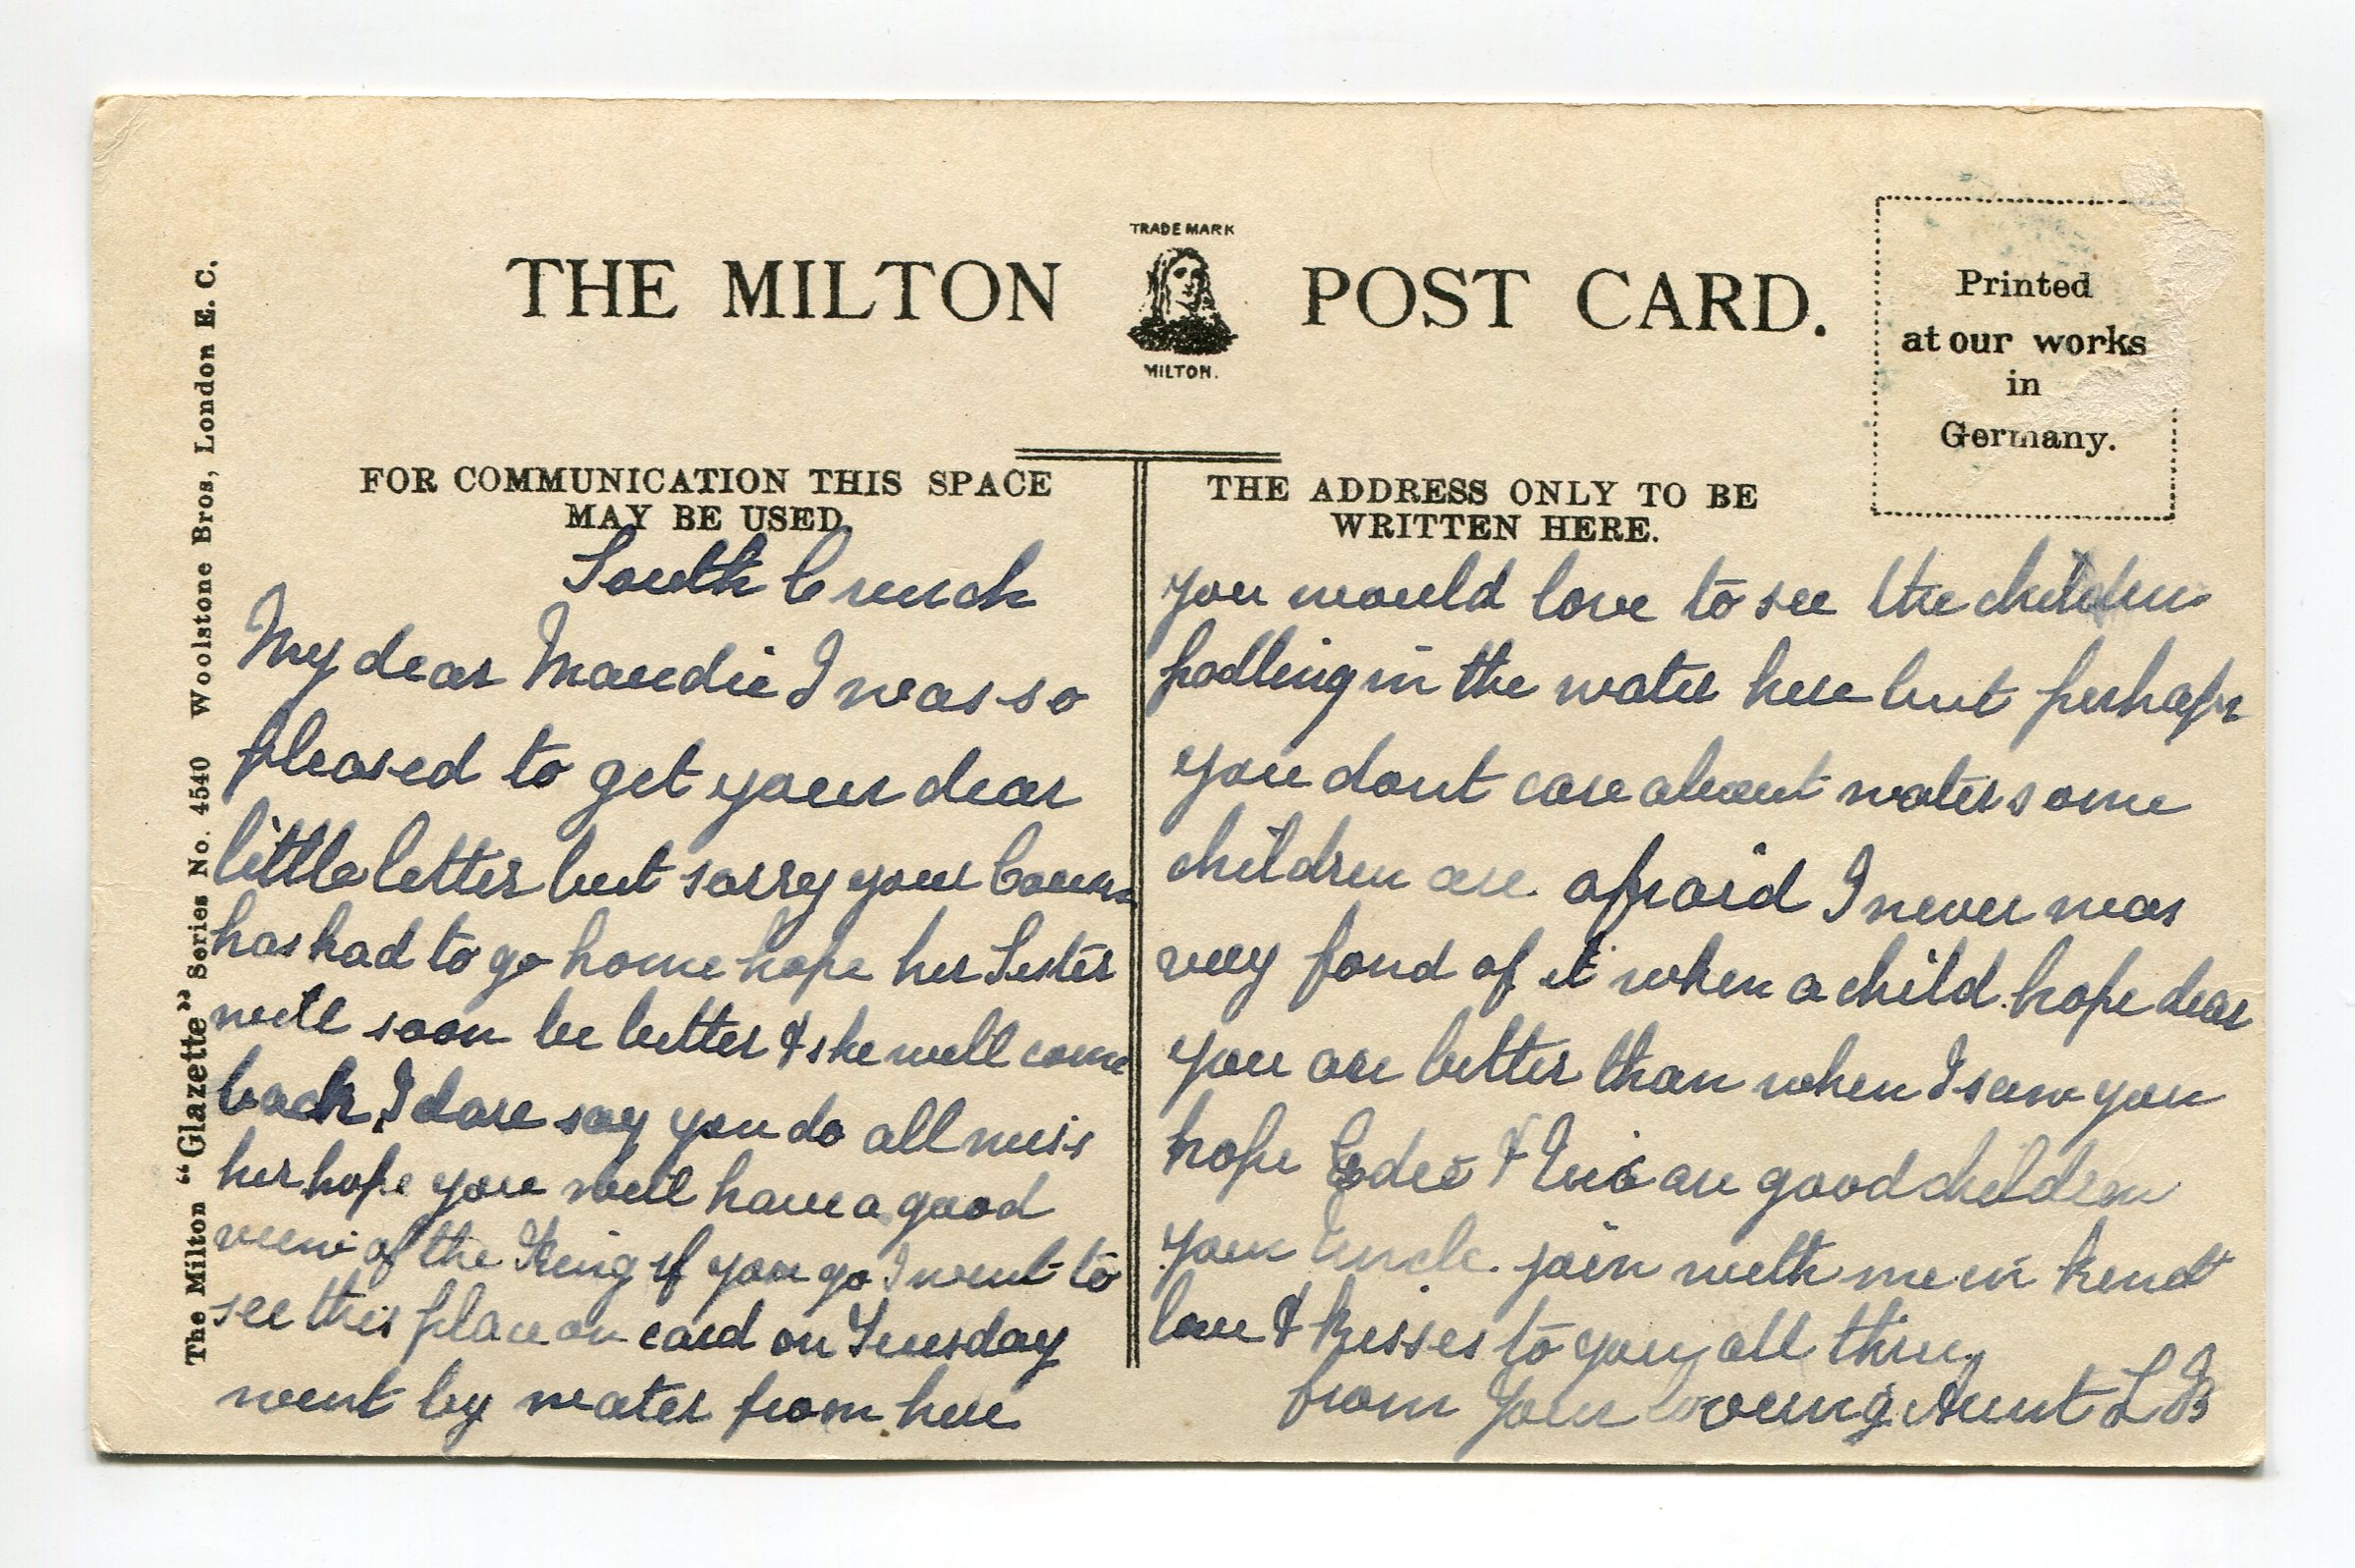 The Milton "Glazette" Series No. 4540 Woolstone Bros, London E. C.
THE MILTON POST CARD.
TRADE MARK
MILTON.
Printed
at our works
in
Germany.
FOR COMMUNICATION THIS SPACE
MAY BE USED.
South
My dear Maudie I was so
pleased to get your dear
little letter but sorry your
has had to go home hope her Sister
will soon be better & she will come
back, I dare say you do all miss
her hope you will have a good
view of the King if you go I went to
see this place on card on Tuesday
went by water from here
THE ADDRESS ONLY TO BE
WRITTEN HERE.
you would love to see the children
padling in the water here but perhaps
you dont care about water some
children are afraid I never was
very fond of it when a child. hope dear
you are better than when I saw you
hope & are good children
your Uncle join with me in kind
love & kisses to you all
from your loving Aunt L B